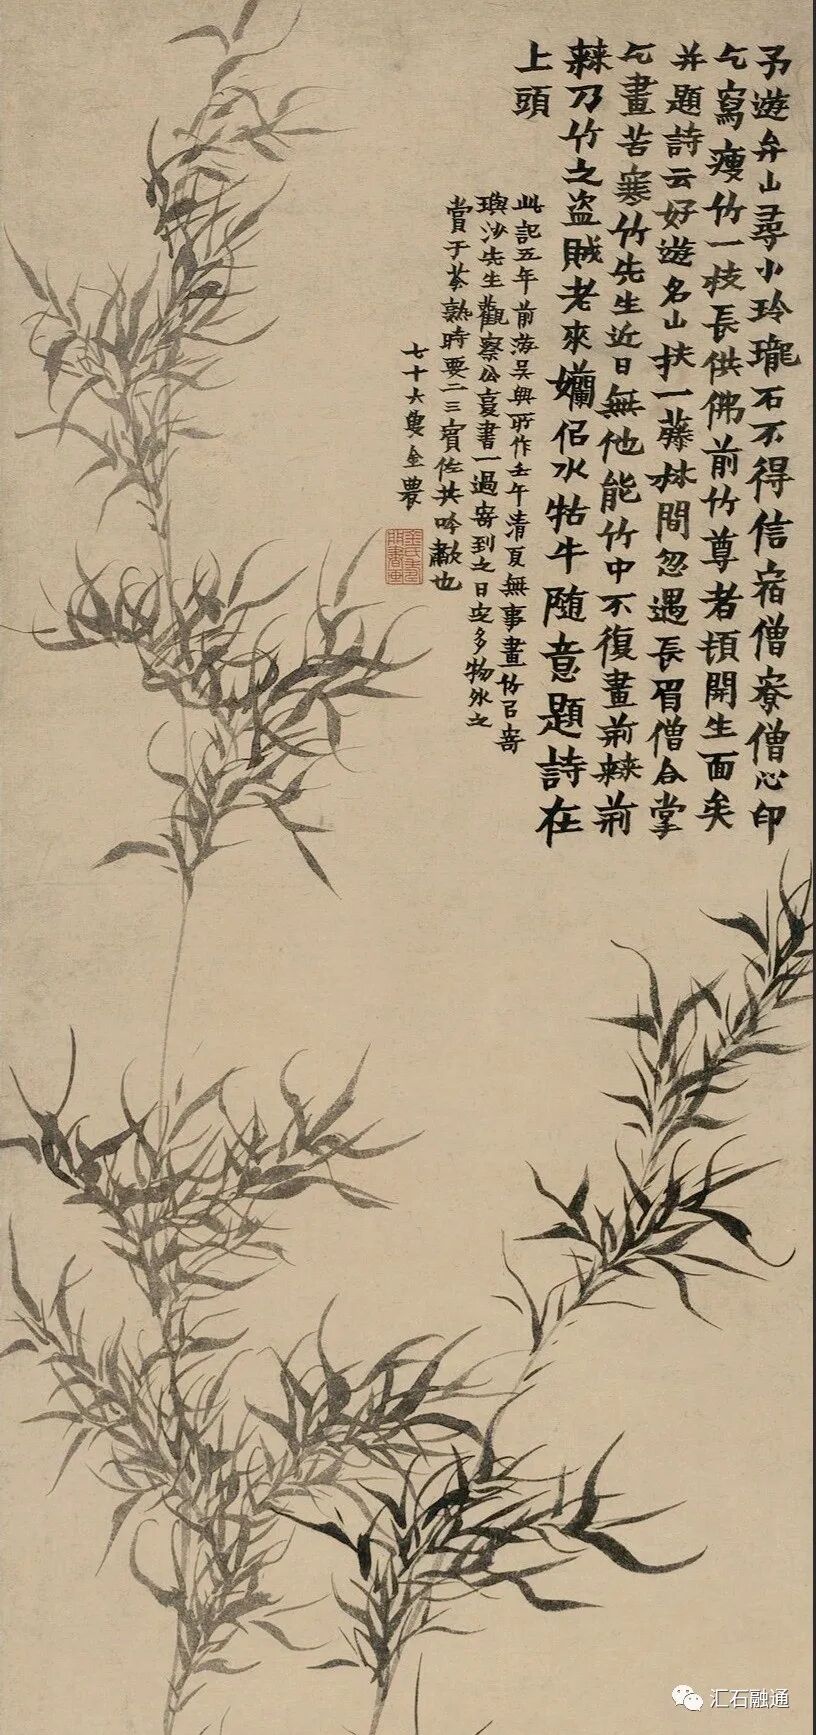 予遊弁山尋小玲瓏石不得信宿僧寮僧心印
乞寫瘦竹一枝長供佛前竹尊者頓開生面矣
并題詩云好遊名山扶一藤林間忽遇長眉僧合掌
乞畫苦寒竹先生近日無他能竹中不復畫荊棘荊
棘乃竹之盜賊老來孏似水牯牛隨意題詩在
上頭
此記五年前游吳興所作壬午清夏無事畫竹召寄
璵沙先生觀察公衺書一過寄到之日定多物外之
賞于茶熟時要二三賓佐共吟歗也
七十六叟金農
汇石融通